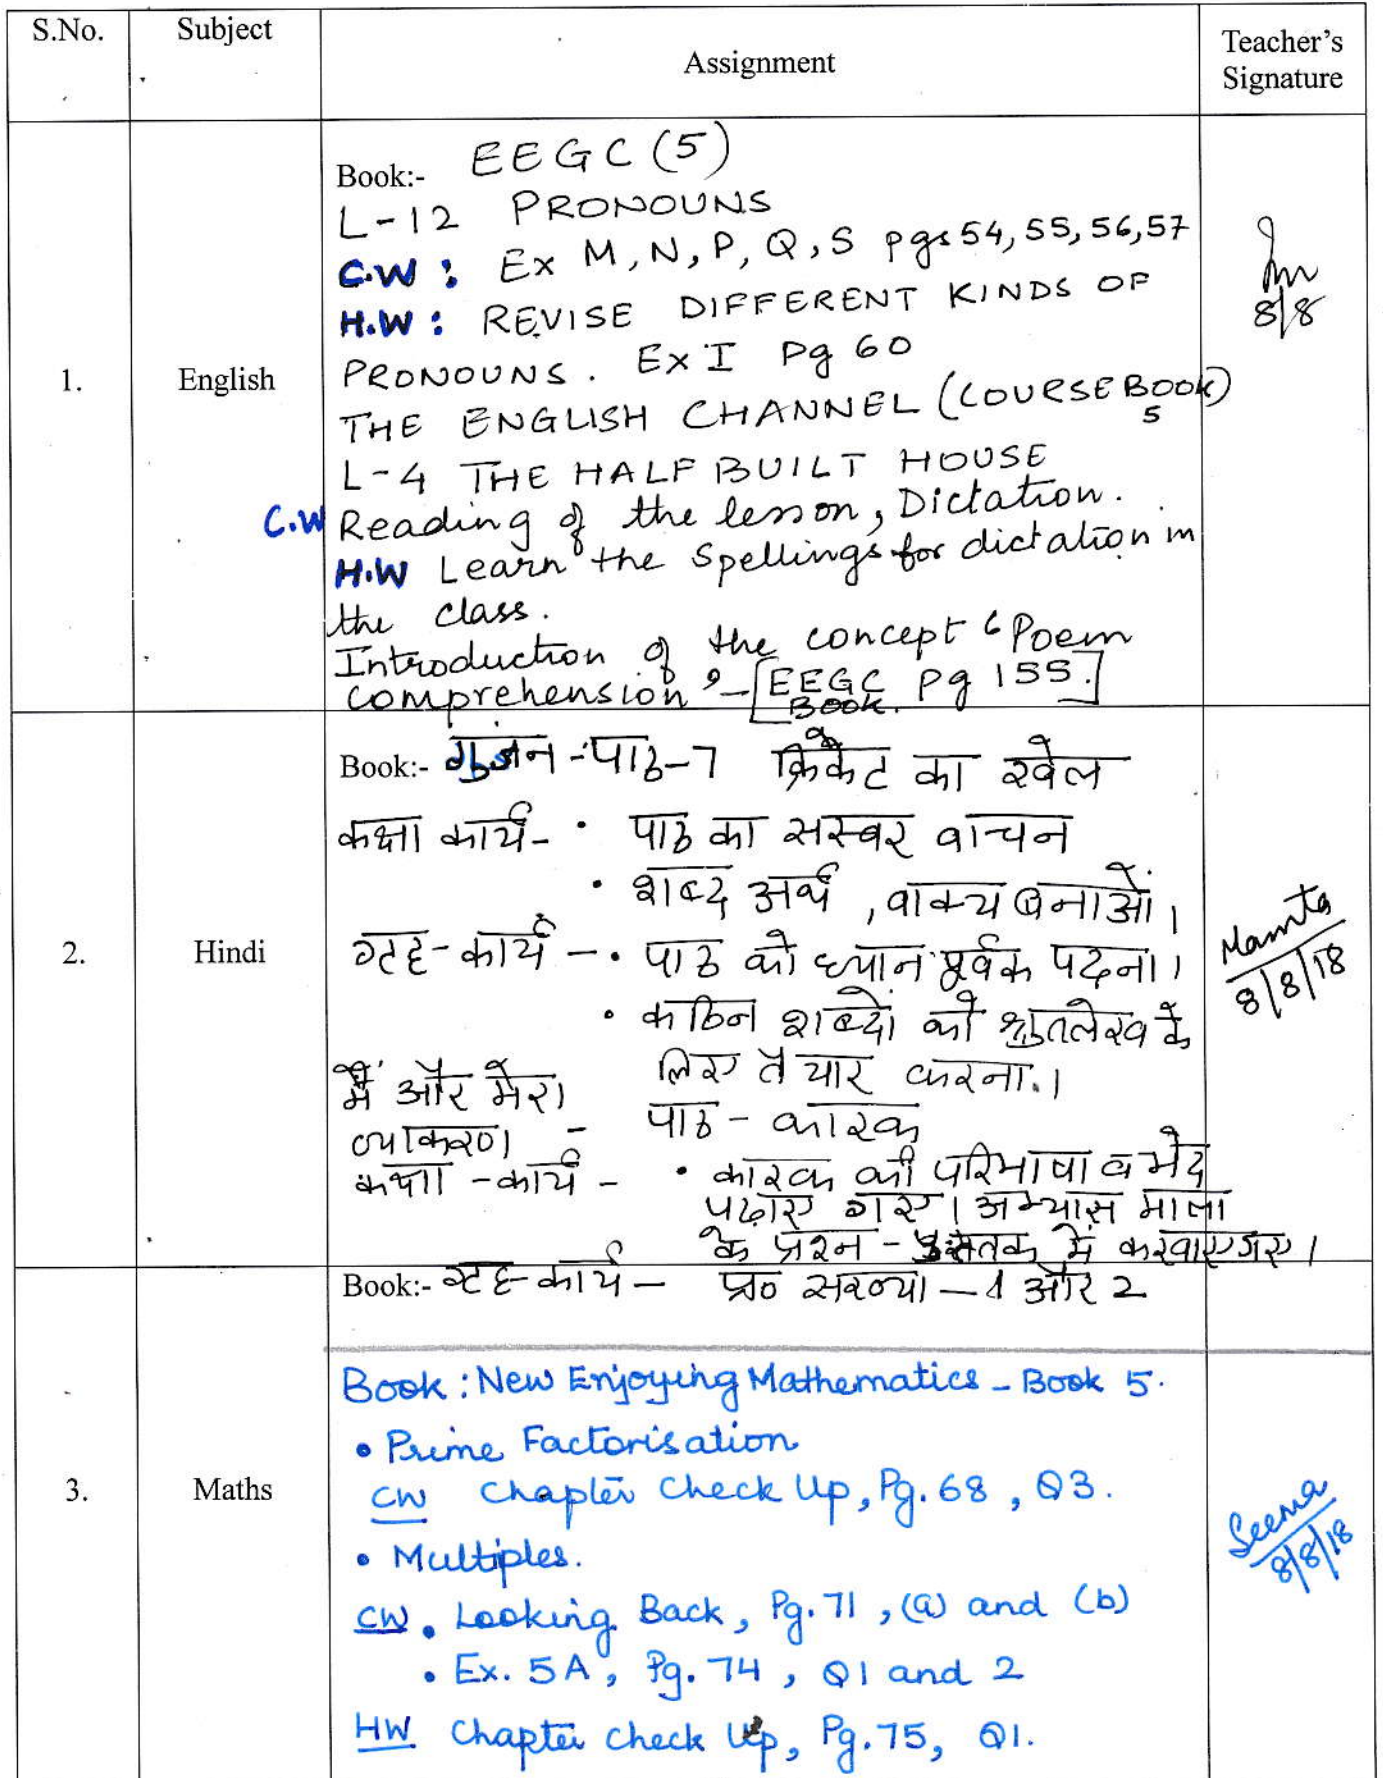 S.No. Subject Assignment Teacher's Signature
Book:- EEGC (5)
L-12 PRONOUNS
C.W : Ex M, N, P, Q, S pgs 54, 55, 56, 57
H.W : REVISE DIFFERENT KINDS OF
PRONOUNS. Ex I Pg 60
1. English
THE ENGLISH CHANNEL (COURSE BOOK)
5
L-4 THE HALF BUILT HOUSE
C.W Reading of the lesson, Dictation.
H.W Learn the Spellings for dictation in
the class.
Introduction of the concept 'Poem
comprehension' - [EEGC Book. Pg 155.]
8/8
Book:- गुंजन - पाठ - 7 क्रिकेट का खेल
कक्षा कार्य - • पाठ का सस्वर वाचन
• शब्द अर्थ, वाक्य बनाओं।
2. Hindi
गृह - कार्य - • पाठ को ध्यान पूर्वक पढ़ना।
• कठिन शब्दों को श्रुतलेख के
लिए तैयार करना।
मैं और मेरा
व्याकरण - पाठ - कारक
कक्षा - कार्य - • कारक की परिभाषा व भेद
पढ़ाए गए। अभ्यास माला
के प्रश्न - पुस्तक में करवाए गए।
Mamta
8/8/18
Book:- गृह - कार्य - प्र० संख्या - 1 और 2
Book : New Enjoying Mathematics - Book 5.
• Prime Factorisation
3. Maths
CW Chapter Check Up, Pg. 68, Q3.
• Multiples.
CW • Looking Back, Pg. 71, (a) and (b)
• Ex. 5A, Pg. 74, Q1 and 2
HW Chapter Check Up, Pg. 75, Q1.
Seema
8/8/18